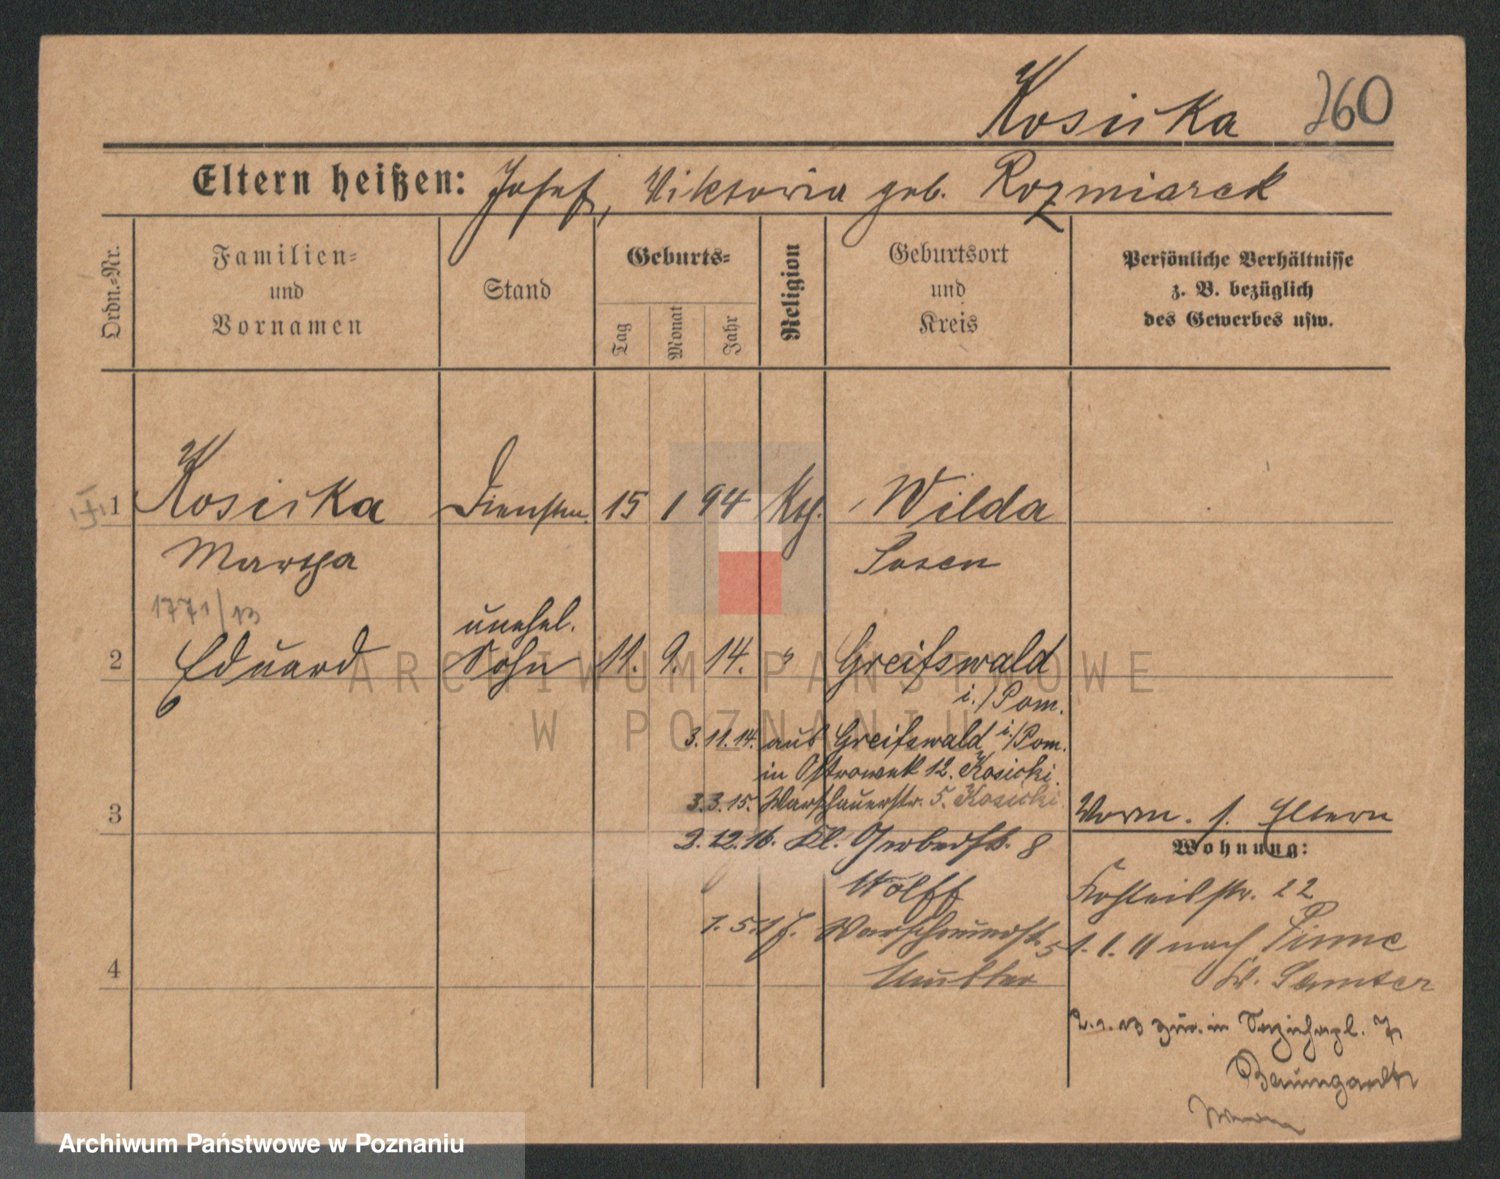 Kosicka 260
Eltern heißen: Josef, Viktoria geb. Rozmiarek
Ordn.-Nr.
Familien-
und
Vornamen
Stand
Geburts-
Tag
Monat
Jahr
Religion
Geburtsort
und
Kreis
Persönliche Verhältnisse
z. B. bezüglich
des Gewerbes usw.
1 Kosicka Dienstm. 15 1 94 Kth. Wilda
Martha Posen
1771/13
unehel.
2 Eduard Sohn 11. 9. 14. " Greifswald
i./Pom.
3.11.14. aus Greifswald i/Pom.
in Ostrowek 12. Kosicki.
3.3.15. Warschauerstr. 5. Kosicki
3
Worm. s. Eltern
2.12.16. Kl. Gerberstr. 8
Wohnung:
Wolff
22
1.5.17. Warschauerstr. 5
Mutter
1.1.11 nach Pinne
Kr. Samter
4
2.1.13 zur. in 7
Baumgardt
ARCHIWUM PAŃSTWOWE
W POZNANIU
Archiwum Państwowe w Poznaniu